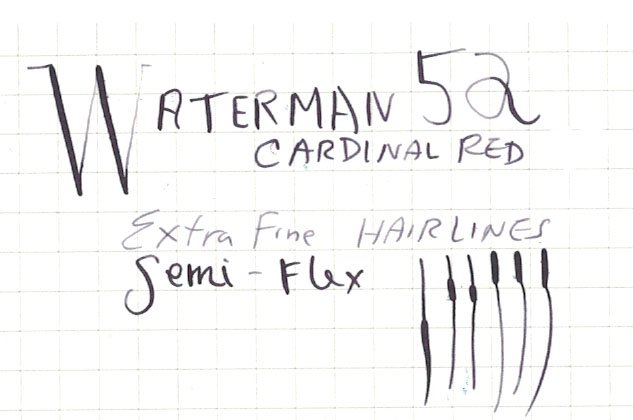 WATERMAN 52
CARDINAL RED
Extra Fine HAIRLINES
Semi-Flex